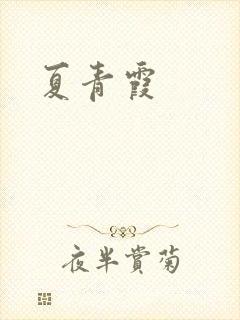 夏青霞
夜半赏菊